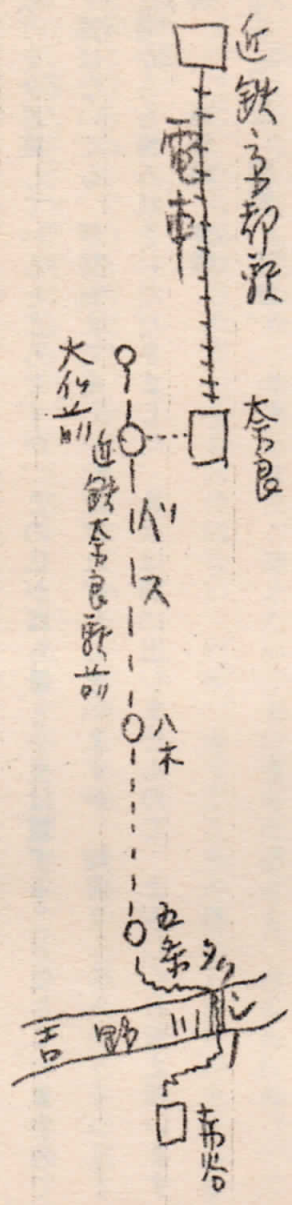 近鉄京都駅
電車
奈良
大仏前
近鉄奈良駅前
バス
八木
五条
タクシー
吉野川
赤谷